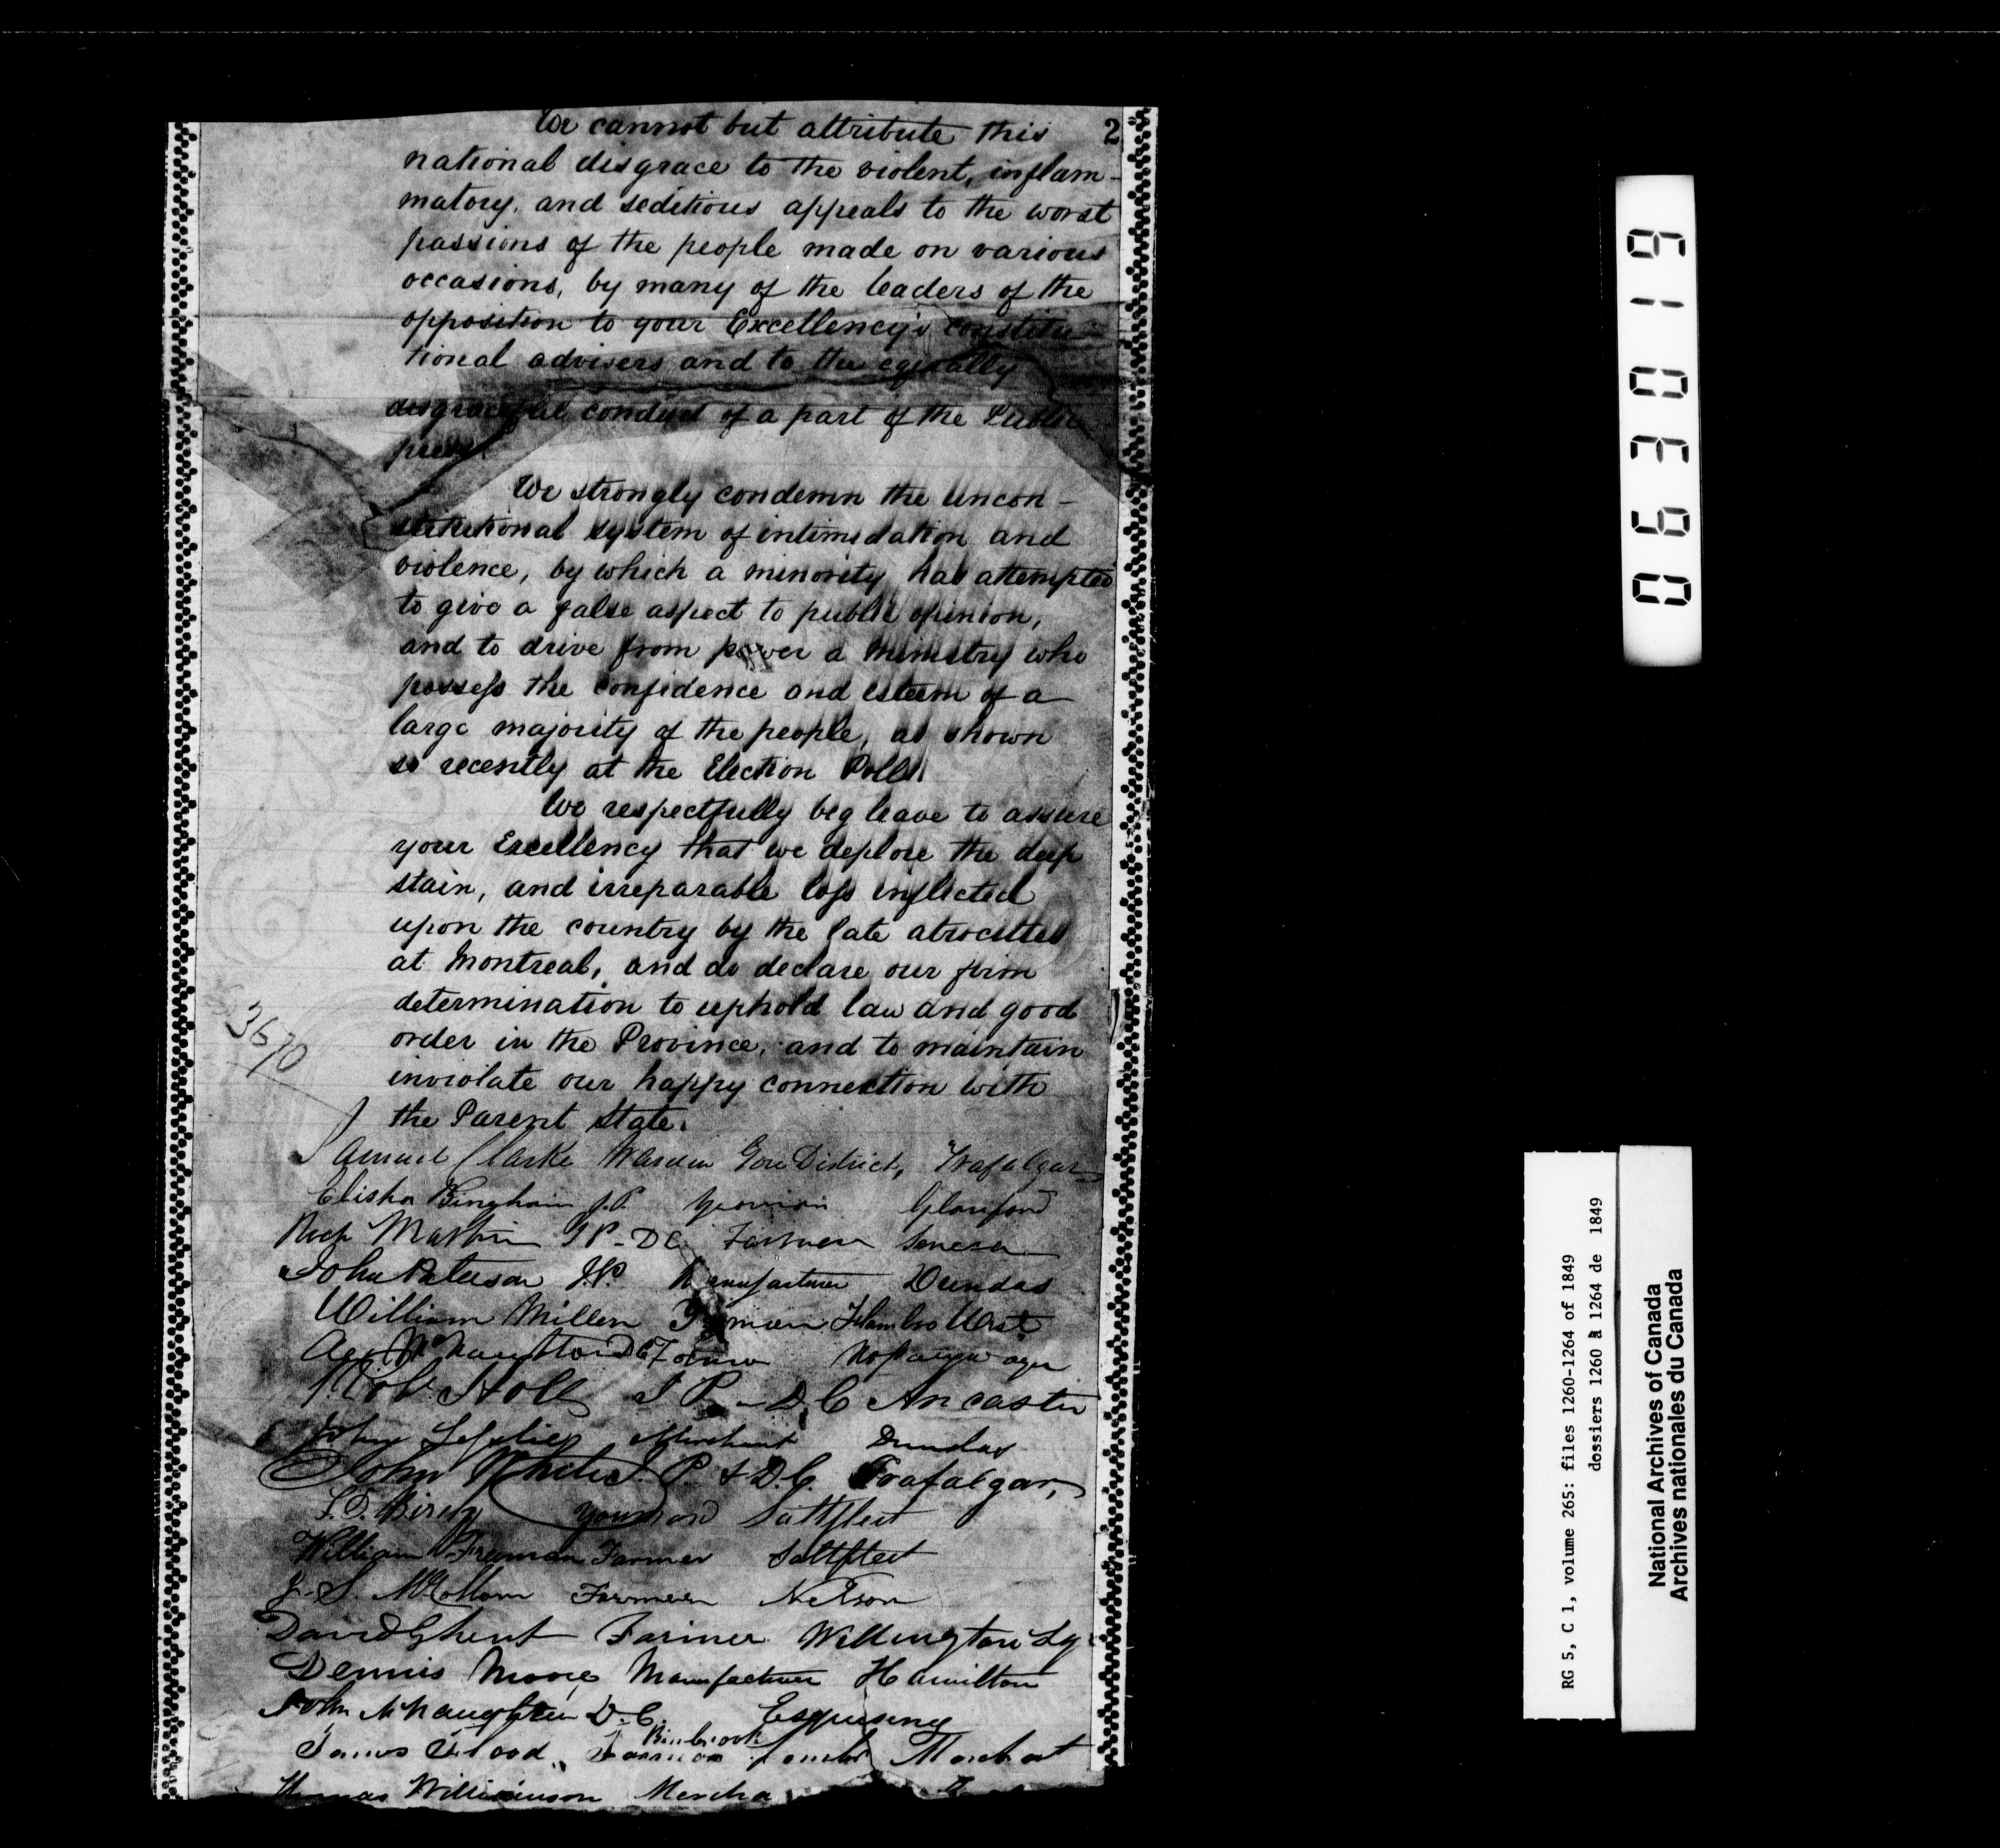 2
We cannot but attribute this
national disgrace to the violent, inflam-
matory, and seditious appeals to the worst
passions of the people made on various
occasions, by many of the leaders of the
opposition to your Excellency's constitu-
tional advisers and to the equally
disgraceful conduct of a part of the Public
press.
We strongly condemn the uncon-
stitutional system of intimidation and
violence, by which a minority has attempted
to give a false aspect to public opinion,
and to drive from power a Ministry who
possess the confidence and esteem of a
large majority of the people, as shown
so recently at the Election Polls.
We respectfully beg leave to assure
your Excellency that we deplore the deep
stain, and irreparable loss inflicted
upon the country by the late atrocities
at Montreal, and do declare our firm
determination to uphold law and good
order in the Province, and to maintain
inviolate our happy connection with
the Parent State.
3670
Samuel Clarke Warden Gore District, Trafalgar
Elisha Bingham J.P. Yeoman Glanford
Martin J P - D C Farmer Seneca
John Paterson J.P. Manufacturer Dundas
William Miller Flambro West
D C Farmer
Rob. Holt J P - D C Ancaster
John Leslie Merchant Dundas
John White J. P & D. C. Trafalgar,
Saltfleet
William Freeman Farmer Saltfleet
J. S. McCollom Farmer Nelson
David Ghent Farmer Wellington Sq
Dennis Moore Manufacturer Hamilton
John McNaughten D. C. Esquesing
Binbrook
James Flood Farmer Merchant
Thomas Williamson Mercha
063019
RG 5, C 1, volume 265: files 1260-1264 of 1849
dossiers 1260 à 1264 de 1849
National Archives of Canada
Archives nationales du Canada